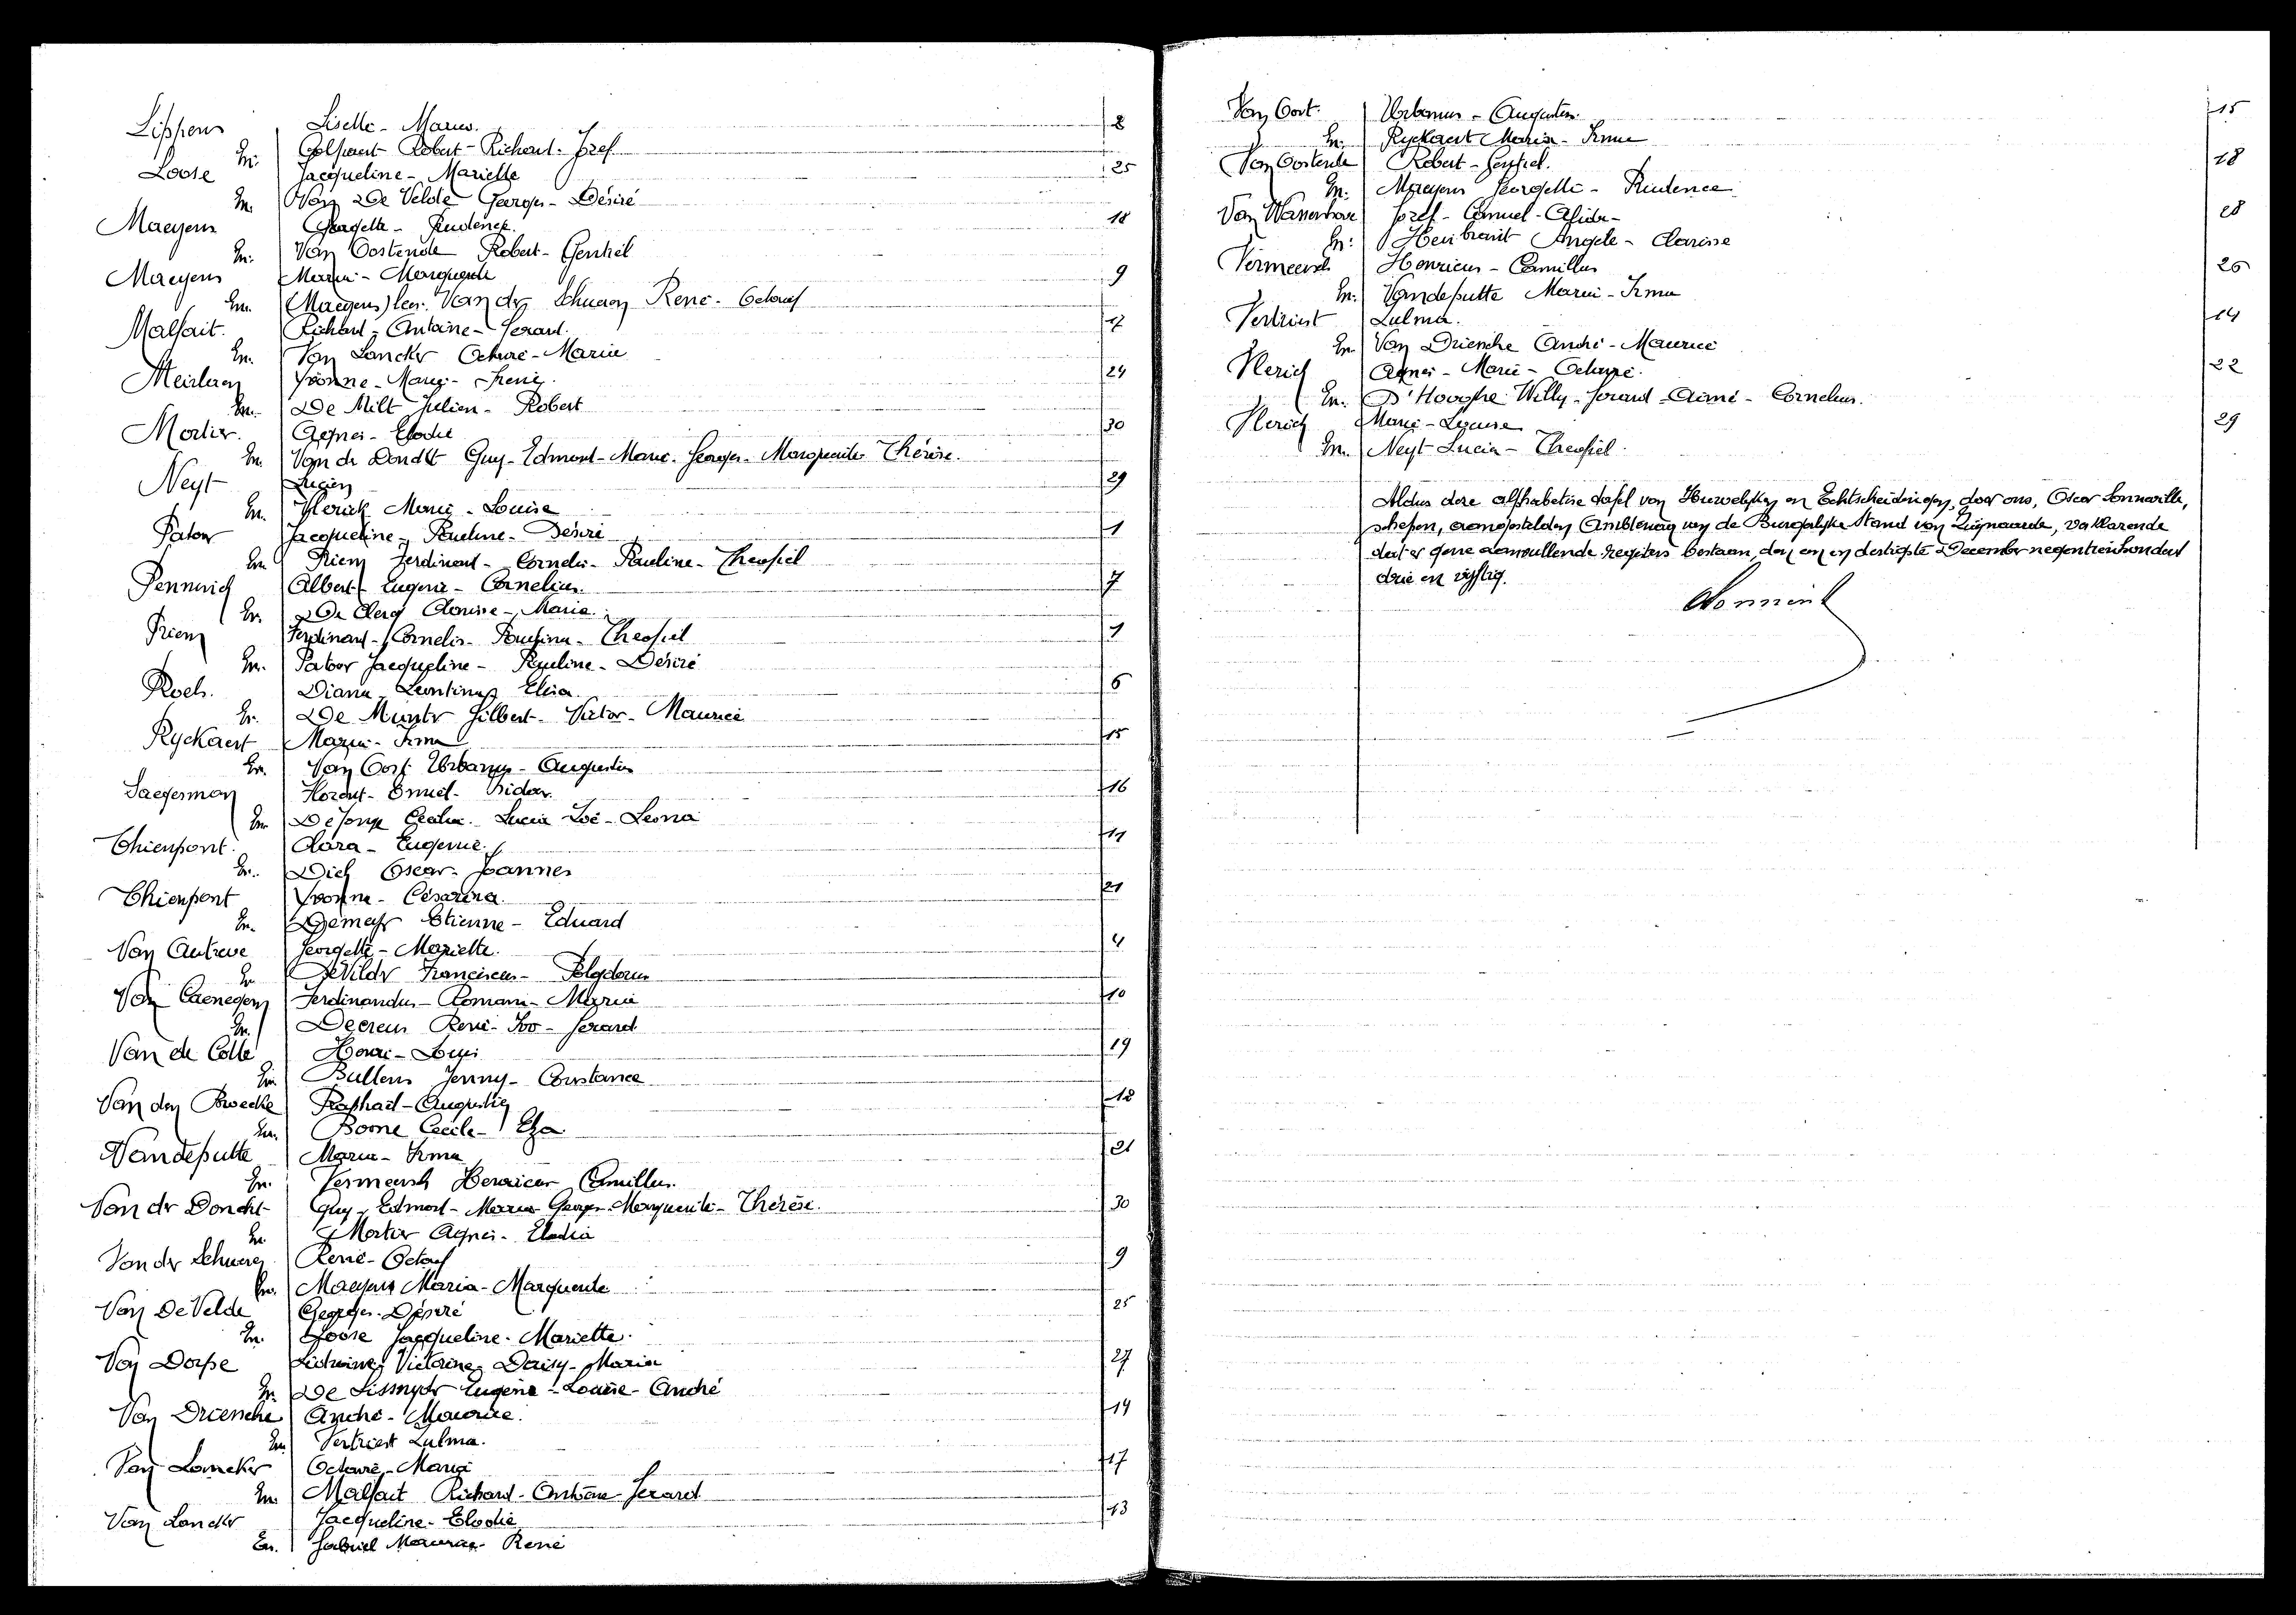 Lippens Liselle - Maria. 2
En. Colpaert Robert - Richard - Jozef
Loose Jacqueline - Mariette 25
En. Van De Velde Georges - Désiré
Maeyens Georgette - Prudence. 18
En. Van Oostende Robert - Gentiel
Maeyens Maria - Marguerite 9
En. (Maeyens) Van der Schueren René - Octaaf
Malfait. Richard - Antoine - Gerard. 17
En. Van Lancker Octavie - Maria
Meirlaen Yvonne - Maria - Irene. 24
En. De Milt Julien - Robert
Mortier. Agnes - Elodie 30
En. Van der Donckt Guy - Edmond - Marie - Georges - Marguerite Thérèse.
Neyt Lucien 29
En. Vlerick Marie - Louise
Pator Jacqueline - Pauline - Désiré 1
En. Priem Ferdinand - Cornelis - Pauline - Theofiel
Penninck Albert - Eugene - Cornelius. 7
En. De Clercq Clarisse - Maria.
Priem Ferdinand - Cornelis - Paulina - Theofiel 1
En. Pator Jacqueline - Pauline - Désiré
Roels. Diana - Leontina - Elisa. 6
En. De Munter Gilbert - Victor - Maurice
Ryckaert Maria - Irma 15
En. Van Oost Urbanus - Augustin
Saegerman Florent - Emiel - Isidoor. 16
En. De Jonge Cecilia - Lucia Zoë - Leona
Thienpont. Clara - Eugenie. 11
En. Oscar - Joannes
Thienpont Yvonne - Césarina. 21
En. Etienne - Eduard
Van Autreve Georgette - Mariette. 4
En. De Vilder Franciscus - Polydorus
Van Caenegem Ferdinandus - Romain - Maria 10
En. Decreus René - Ivo - Gerard
Van de Colle Henri - Louis 19
En. Bullens Jenny - Constance
Van den Raphaël - Augustin 12
En. Boone Cecile - Elza.
Vandeputte Maria - Irma 21
En. Vermeersch Henricus Camillus.
Van der Donckt Guy - Edmond - Marie Georges - Marguerite - Thérèse. 30
En. Mortier Agnes - Elodia
Van der Schueren René - Octaaf 9
En. Maeyens Maria - Marguerite
Van De Velde Georges - Désiré 25
En. Loose Jacqueline - Mariette.
Van Dorpe Victorine - Daisy - Maria 27
En. De Lissnyder Eugène - Louise - André
Van Driesche André - Maurice. 14
En. Vertriest Zulma.
Van Lancker Octavie - Maria 17
En. Malfait Richard - Antoine - Gerard
Van Lancker Jacqueline - Elodie 13
En. Gabriel Maurice - René
Van Oost. Urbanus - Augustin. 15
En. Ryckaert Maria - Irma
Van Oostende Robert - Gentiel. 18
En. Maeyens Georgette - Prudence
Van Wassenhove Jozef - Camiel - 28
En. Heinbrant Angele - Clarisse
Vermeersch Henricus - Camillus 26
En. Vandeputte Maria - Irma
Vertriest Zulma. 14
En. Van Driesche André - Maurice
Vlerick Agnes - Marie - Octavie. 22
En. D'Hooghe Willy - Gerard - Aimé - Cornelius.
Vlerick Marie - Louise 29
En. Neyt Lucien - Theofiel.
Aldus deze alphabetise tafel van Huwelijken en Echtscheidingen, door ons, Oscar Sonneville,
schepen, aangestelden Ambtenaar van de Burgerlijke Stand van Zwijnaarde, verklarende
dat er gene aanvullende registers bestaan, den een en dertigste December negentienhonderd
drie en vijftig.